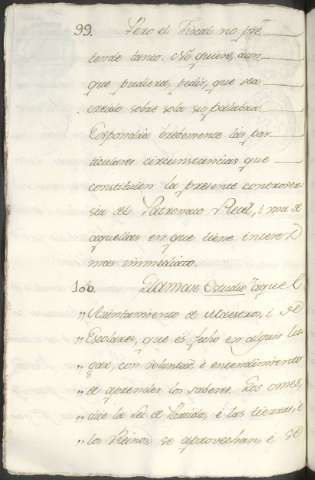 99. Pero el Fiscal no pre-
tende tanto. No quiere, aun-
que pudiera, pedir, que sea
creido sobre sola su palabra.
Expondrá brevemente las par-
ticulares circunstancias que
constituien la presente controver-
sia de Patronato Real, i una de
aquellas en que tiene interes
mas immediato.
100. Llamase Estudio aquel
„ Aiuntamiento de Maestros, i de
„ Escolares, que es fecho en algun lu-
„ gar, con voluntad, e entendimiento
„ de aprender los saberes. Los omes,
„ dice la Lei de Partida, e las tierras, e
„ los Reinos se aprovechan, e se